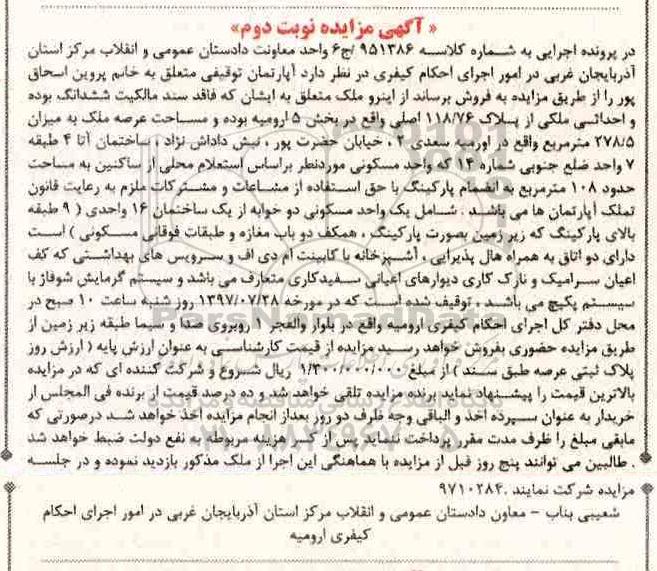 « آگهی مزایده نوبت دوم»
در پرونده اجرایی به شماره کلاسه ۹۵۱۳۸۶ /ج۶ واحد معاونت دادستان عمومی و انقلاب مرکز استان
آذربایجان غربی در امور اجرای احکام کیفری در نظر دارد آپارتمان توقیفی متعلق به خانم پروین اسحاق
پور را از طریق مزایده به فروش برساند از اینرو ملک متعلق به ایشان که فاقد سند مالکیت ششدانگ بوده
و احداثی ملکی از پلاک ۱۱۸/۷۶ اصلی واقع در بخش ۵ ارومیه بوده و مساحت عرصه ملک به میزان
۲۷۸/۵ مترمربع واقع در اورمیه سعدی ۲ ، خیابان حضرت پور ، نبش داداش نژاد ، ساختمان آتا ۴ طبقه
۷ واحد ضلع جنوبی شماره ۱۴ که واحد مسکونی موردنظر براساس استعلام محلی از ساکنین به مساحت
حدود ۱۰۸ مترمربع به انضمام پارکینگ با حق استفاده از مشاعات و مشترکات ملزم به رعایت قانون
تملک آپارتمان ها می باشد . شامل یک واحد مسکونی دو خوابه از یک ساختمان ۱۶ واحدی ( ۹ طبقه
بالای پارکینگ که زیر زمین بصورت پارکینگ ، همکف دو باب مغازه و طبقات فوقانی مسکونی ) است
دارای دو اتاق به همراه هال پذیرایی ، آشپزخانه با کابینت ام دی اف و سرویس های بهداشتی که کف
اعیان سرامیک و نازک کاری دیوارهای اعیانی سفیدکاری متعارف می باشد و سیستم گرمایش شوفاژ با
سیستم پکیج می باشد . توقیف شده است که در مورخه ۱۳۹۷/۰۷/۲۸ روز شنبه ساعت ۱۰ صبح در
محل دفتر کل اجرای احکام کیفری ارومیه واقع در بلوار والفجر ۱ روبروی صدا و سیما طبقه زیر زمین از
طریق مزایده حضوری بفروش خواهد رسید مزایده از قیمت کارشناسی به عنوان ارزش پایه ( ارزش روز
پلاک ثبتی عرصه طبق سند ) از مبلغ ۱/۳۰۰/۰۰۰/۰۰۰ ریال شروع و شرکت کننده ای که در مزایده
بالاترین قیمت را پیشنهاد نماید برنده مزایده تلقی خواهد شد و ده درصد قیمت از برنده فی المجلس از
خریدار به عنوان سپرده اخذ و الباقی وجه ظرف دو روز بعداز انجام مزایده اخذ خواهد شد درصورتی که
مابقی مبلغ را ظرف مدت مقرر پرداخت ننماید پس از کسر هزینه مربوطه به نفع دولت ضبط خواهد شد
. طالبین می توانند پنج روز قبل از مزایده با هماهنگی این اجرا از ملک مذکور بازدید نموده و در جلسه
مزایده شرکت نمایند .۹۷۱۰۲۸۴
شعیبی بناب - معاون دادستان عمومی و انقلاب مرکز استان آذربایجان غربی در امور اجرای احکام
کیفری ارومیه
ParsNamadData